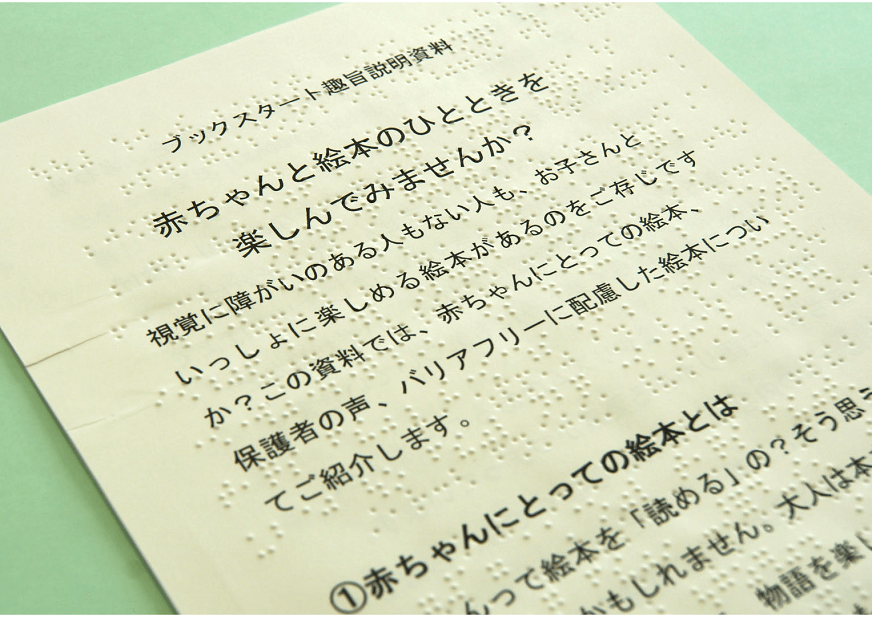 ブックスタート趣旨説明資料
赤ちゃんと絵本のひとときを
楽しんでみませんか？
視覚に障がいのある人もない人も、お子さんと
いっしょに楽しめる絵本があるのをご存じです
か？この資料では、赤ちゃんにとっての絵本、
保護者の声、バリアフリーに配慮した絵本につい
てご紹介します。
①赤ちゃんにとっての絵本とは
んって絵本を「読める」の？そう思う
かもしれません。大人は本
物語を楽し